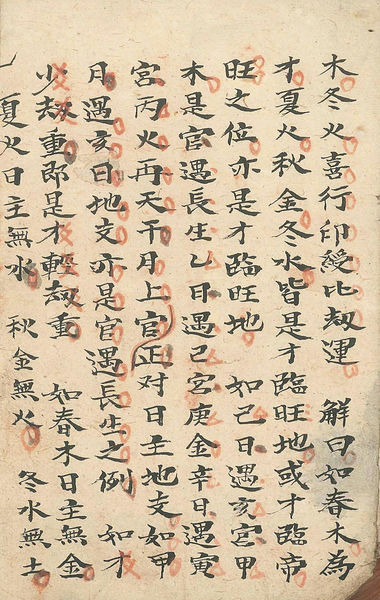 木冬火喜行印綬比劫運　解曰如春木為
才夏火秋金冬水皆是才臨旺地或才臨帝
旺之位亦是才臨旺地　如己日遇亥宮甲
木是官遇長生乙日遇己宮庚金辛日遇寅
宮丙火再天干月上官正对日主地支如甲
月遇亥日地支亦是官遇長生之例　如才
少劫重即是才輕劫重　如春木日主無金
夏火日主無水　秋金無火　冬水無土